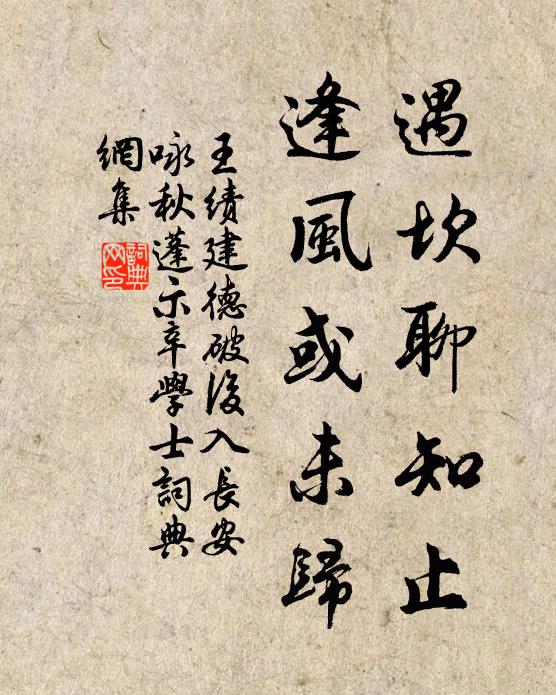 遇坎聊知止
逢風或未歸
王績建德破後入長安
咏秋蓬示辛學士詞典
網集
詞典
网印